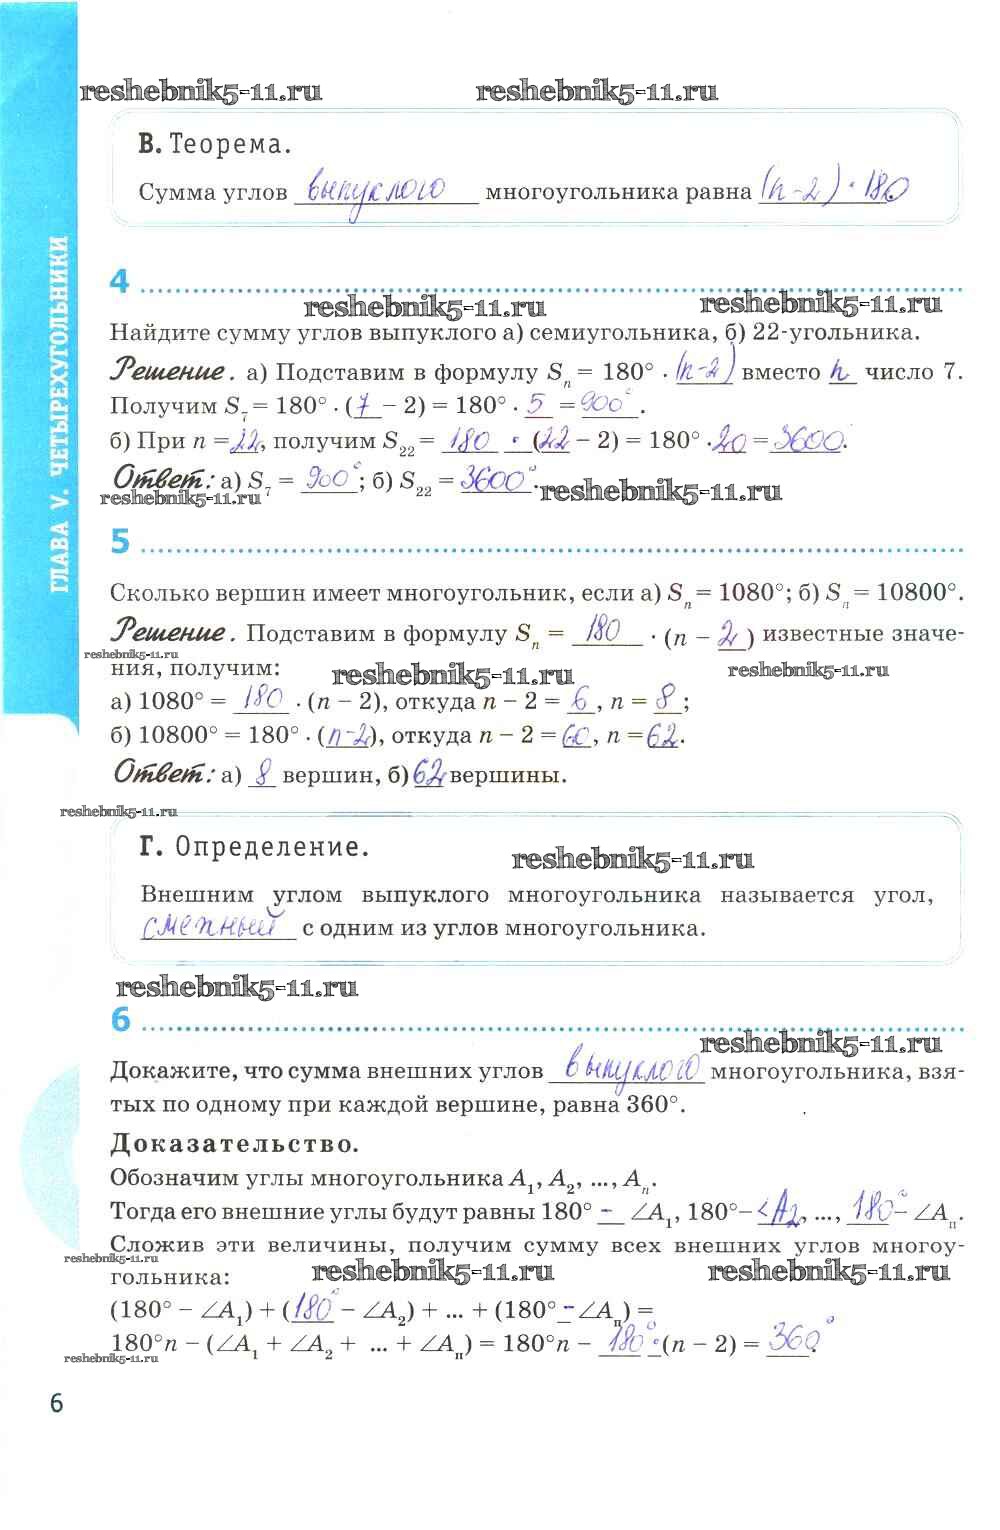 reshebnik5-11.ru reshebnik5-11.ru
В. Теорема.
Сумма углов выпуклого многоугольника равна (n-2)·180.
ГЛАВА V. ЧЕТЫРЕХУГОЛЬНИКИ
4
reshebnik5-11.ru reshebnik5-11.ru
Найдите сумму углов выпуклого а) семиугольника, б) 22-угольника.
Решение. а) Подставим в формулу Sn = 180° · (n-2) вместо n число 7.
Получим S7 = 180° · (7 – 2) = 180° · 5 = 900°.
б) При n = 22, получим S22 = 180 · (22 – 2) = 180° · 20 = 3600.
Ответ: а) S7 = 900°; б) S22 = 3600°.
reshebnik5-11.ru reshebnik5-11.ru
5
Сколько вершин имеет многоугольник, если а) Sn = 1080°; б) Sn = 10800°.
Решение. Подставим в формулу Sn = 180 · (n – 2) известные значе-
reshebnik5-11.ru
ния, получим:
reshebnik5-11.ru reshebnik5-11.ru
а) 1080° = 180 · (n – 2), откуда n – 2 = 6, n = 8;
б) 10800° = 180° · (n-2), откуда n – 2 = 60, n = 62.
Ответ: а) 8 вершин, б) 62 вершины.
reshebnik5-11.ru
Г. Определение.
reshebnik5-11.ru
Внешним углом выпуклого многоугольника называется угол,
смежный с одним из углов многоугольника.
reshebnik5-11.ru
6
reshebnik5-11.ru
Докажите, что сумма внешних углов выпуклого многоугольника, взя-
тых по одному при каждой вершине, равна 360°.
Доказательство.
Обозначим углы многоугольника A1, A2, ..., An.
Тогда его внешние углы будут равны 180° – ∠A1, 180° – <A2, ..., 180° – ∠An.
Сложив эти величины, получим сумму всех внешних углов многоу-
reshebnik5-11.ru
гольника:
reshebnik5-11.ru reshebnik5-11.ru
(180° – ∠A1) + (180° – ∠A2) + ... + (180° – ∠An) =
180°n – (∠A1 + ∠A2 + ... + ∠An) = 180°n – 180°·(n – 2) = 360°.
reshebnik5-11.ru
6